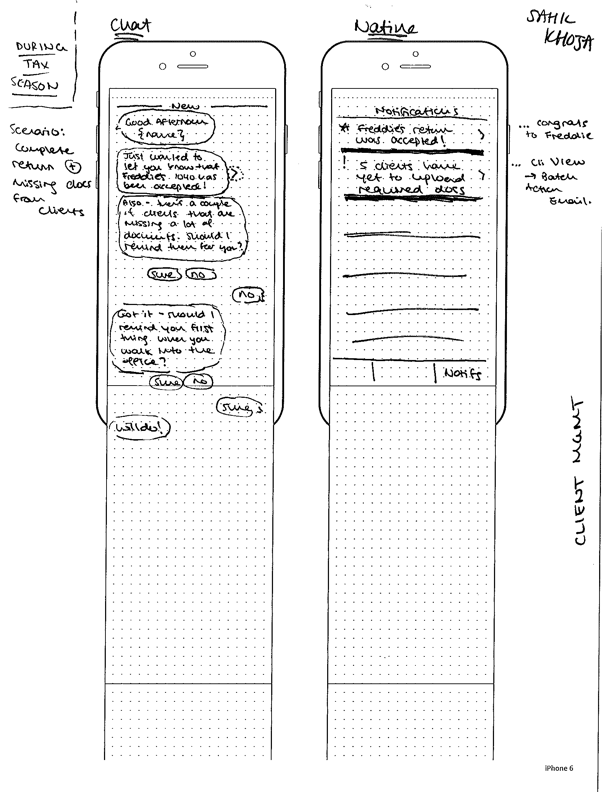 SAHIL
KHOJA
DURING
TAX
SEASON
Scenario:
Complete
return +
missing docs
from
clients
Chat
New
Good Afternoon
{name}
Just wanted to
let you know that
Freddies 1040 has
been accepted!
Also - here's a couple
of clients that are
missing a lot of
documents. Should I
remind them for you?
Sure no
no
Got it - should I
remind you first
thing when you
walk into the
office?
Sure no
Sure
will do!
Native
Notifications
* Freddies return >
was accepted!
! 5 clients have >
yet to upload
required docs
Notifs
... congrats
to Freddie
... Cli View
→ Batch
Action
Email.
CLIENT MGMT
iPhone 6